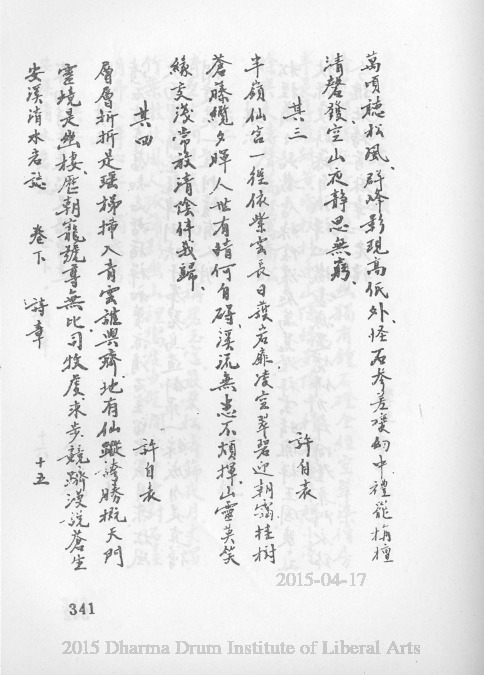 萬頃聽松風、群峰影現高低外、怪石參差變幻中、禮罷栴檀
清磬發、空山夜靜思無窮、
其三 許自表
半嶺仙宮一徑依、紫雲長日護岩扉、凌空翠碧迎朝靄、桂樹
蒼藤纜夕暉、人世有情何自碍、溪流無恙不煩揮、山靈莫笑
緣交淺、常放清陰伴我歸、
其四 許自表
層層折折是瑤梯、插入青雲誰與齊、地有仙蹤誇勝概、天門
靈境是幽棲、歷朝寵號尊無比、司牧虔求步競躋、漫說蒼生
安溪清水岩誌 卷下 詩章 十五
341
2015-04-17
2015 Dharma Drum Institute of Liberal Arts